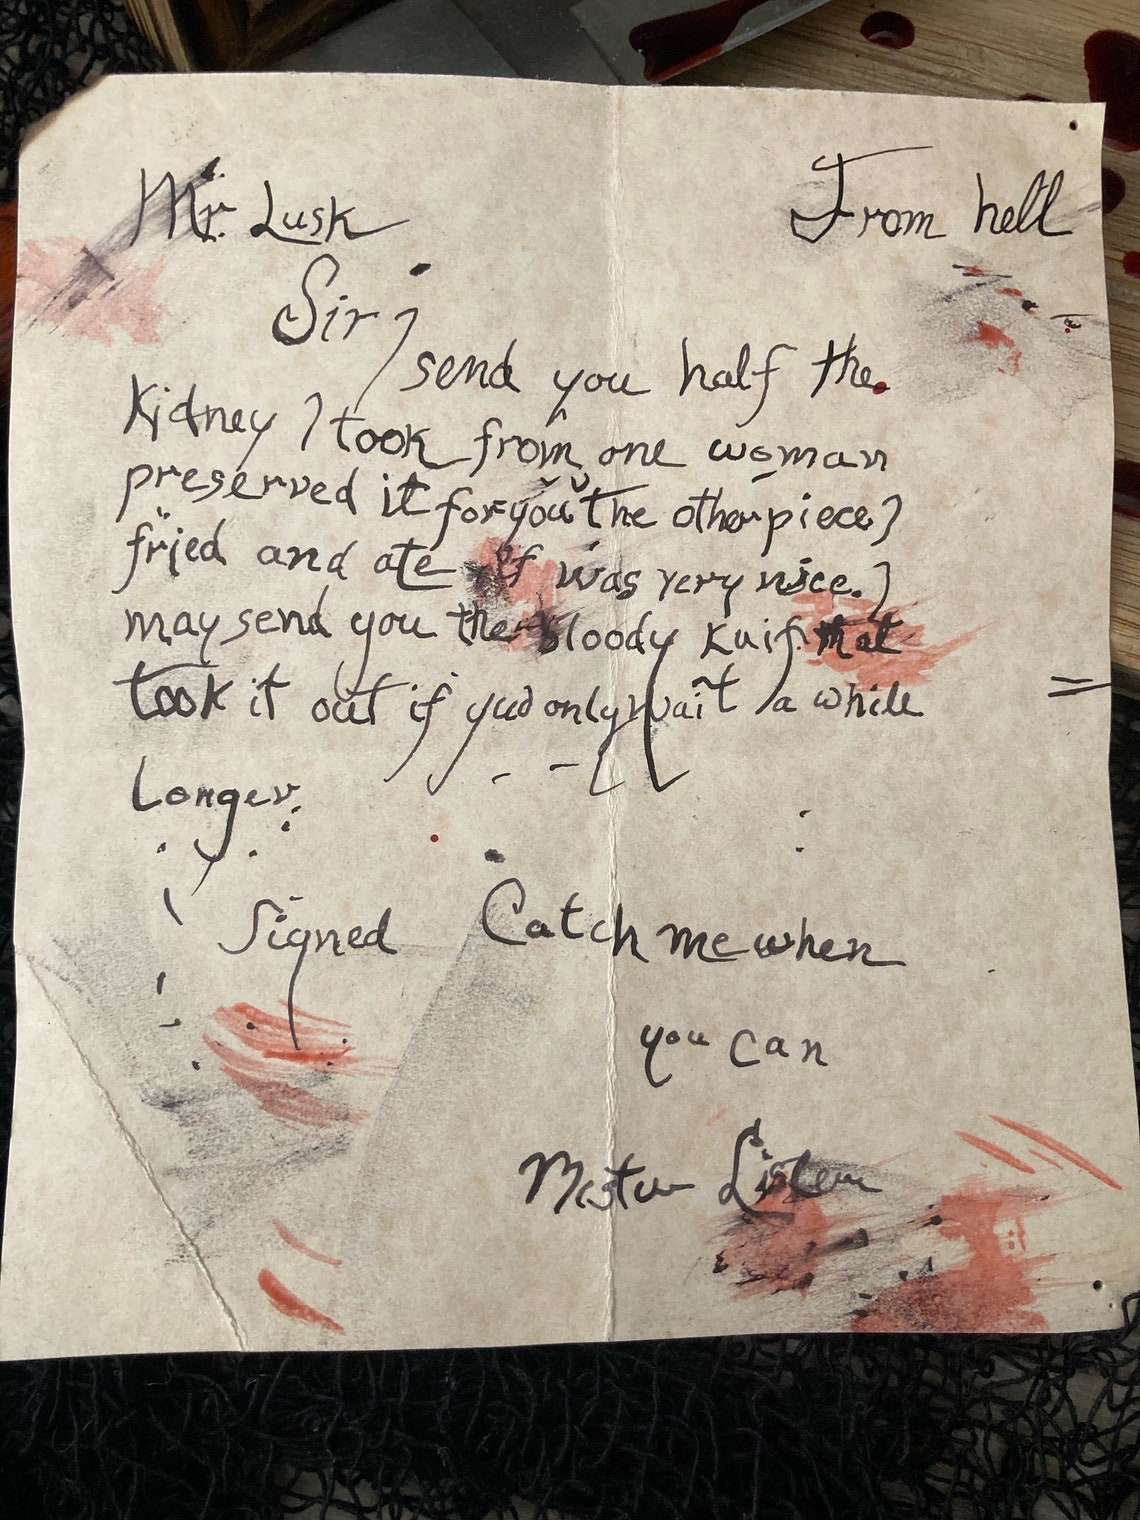 Mr. Lusk From hell
Sir I
send you half the
Kidney I took from one woman
preserved it for you the other piece I
fried and ate it was very nice. I
may send you the bloody Knif that
took it out if you only wait a while
Longer.
Signed Catch me when
you can
Mister